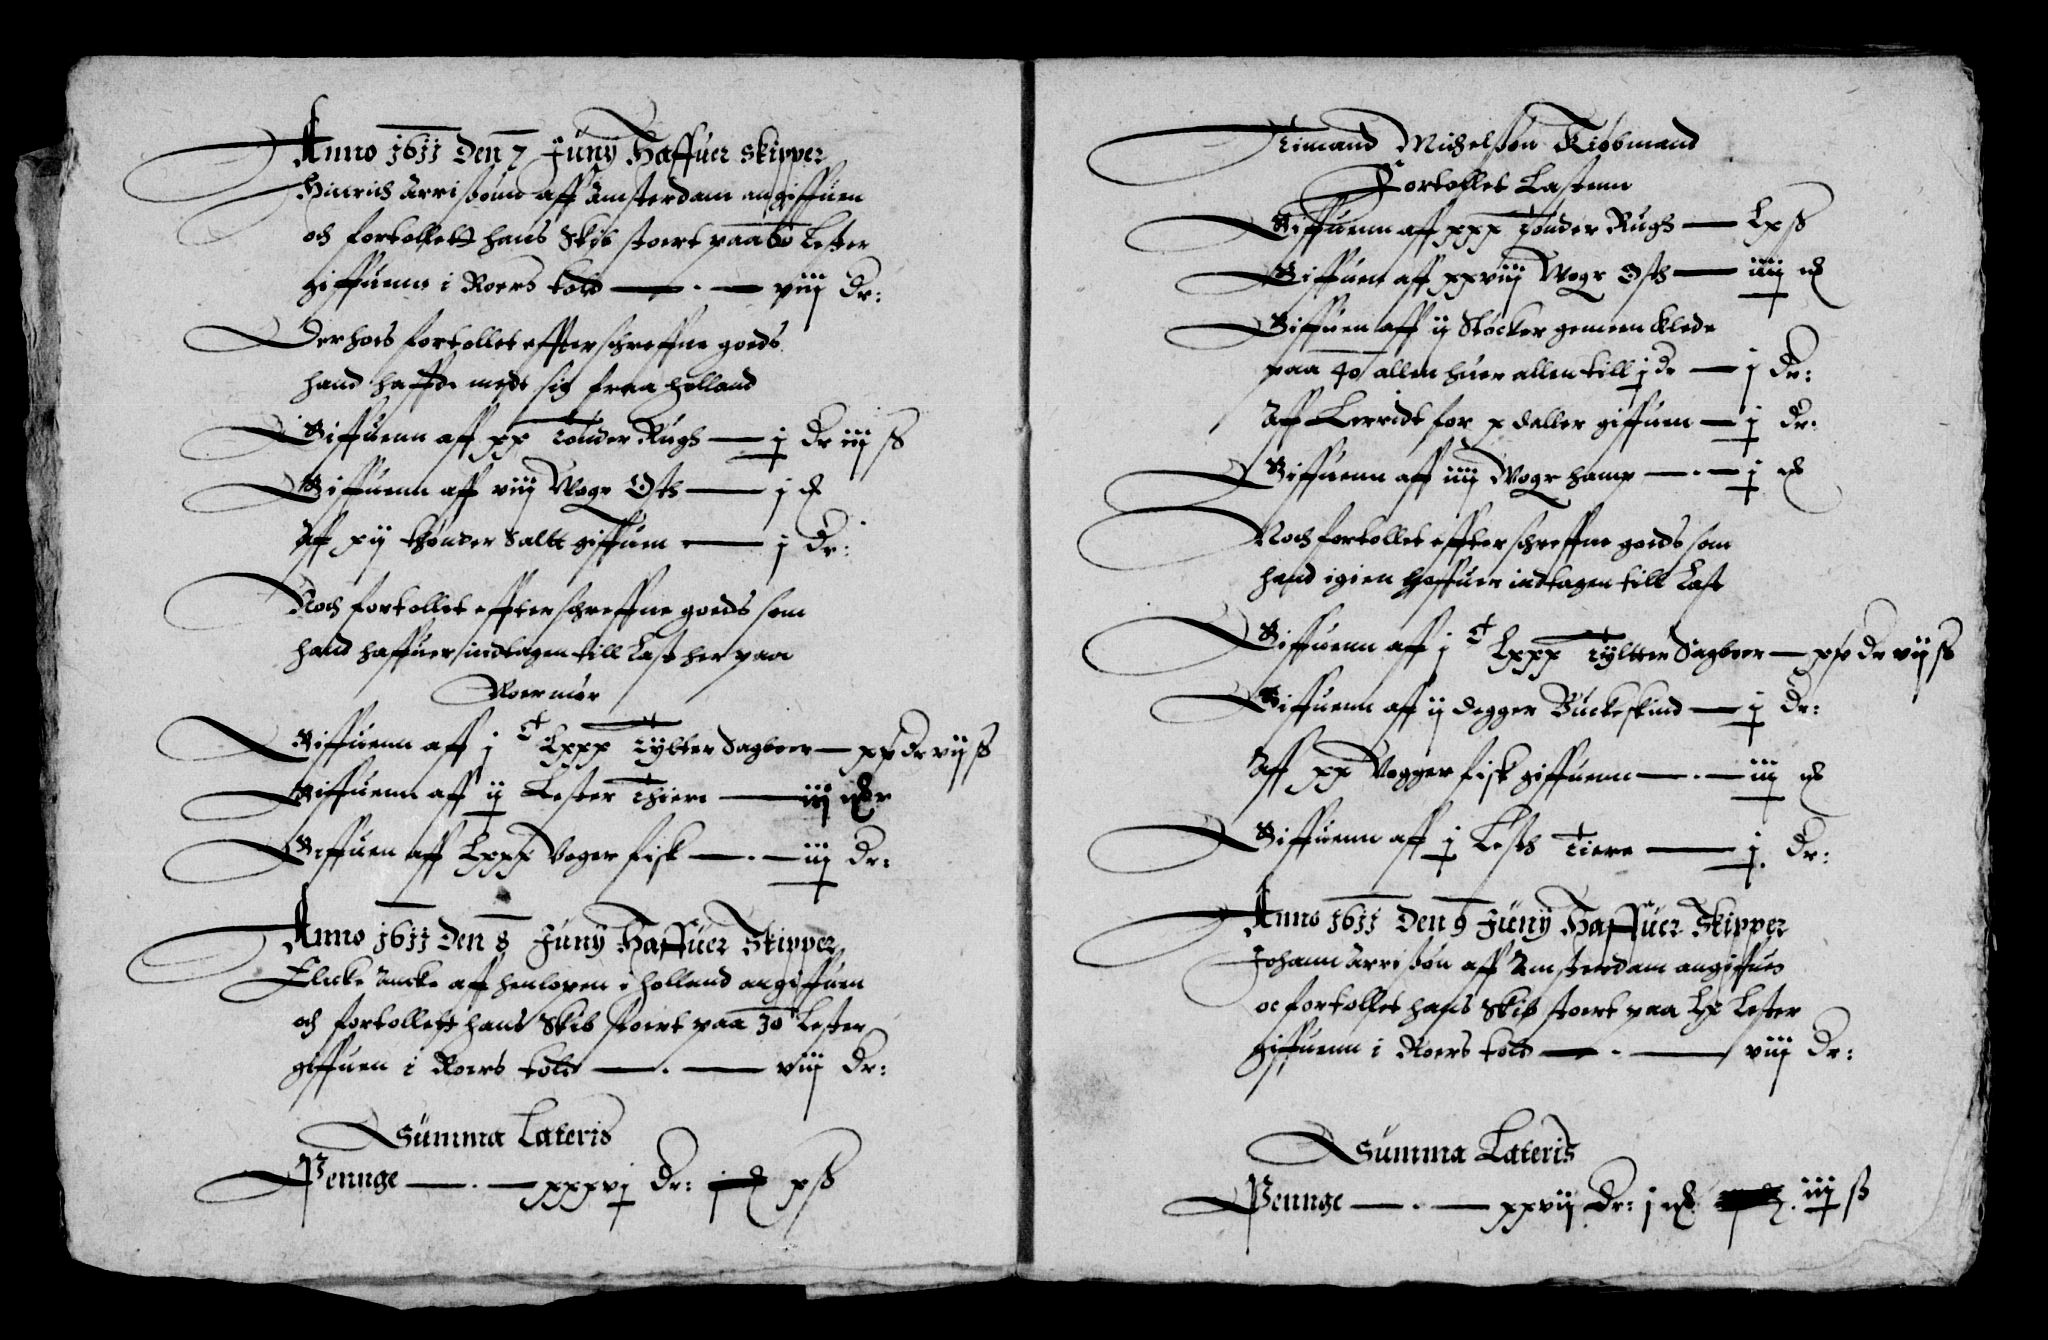 Anno 1611 den 7 Juny Haffuer skipper
Hinrich Arrisønn aff Amsterdam angiffuen
och fortollett hans Skib stoert paa 60 Lester
giffuenn i Roers told — . — viij dr:
Der hoes fortollet effterschreffne goeds
hand haffde medt sig fraa Holland
Giffuenn aff xx Tønder Rugh — j dr iij ß
Giffuenn aff viij Woge Osth — j
Aff xij thønder Saltt giffuen — j dr:
Noch fortollet effterschreffne goeds som
hand haffuer indtagen till Last her paa
Noermør
Giffuenn aff j C Lxxx Tylter Sagboer — xx dr vij ß
Giffuenn aff ij Lester Thiere — iij
Giffuen aff Lxxx Voger fisk — . — iij dr:
Anno 1611 den 8 Juny Haffuer Skipper
aff henlopen i Holland angiffuen
och fortollett hans Skib stoert paa 70 Lester
giffuen i Roers told — . — viij dr:
Summa Lateris
Pennge — . — xxxvj dr: x ß
Timand Michelsøn Kiøbmand
Fortollet Lastenn
Giffuenn aff xxx Tønder Rugh — Lx ß
Giffuenn aff xxviij Wogr Osth — iiij
Giffuen aff ij Støcker gemeen klede
paa 40 allen huer allen till j dr — j dr:
Aff Lerridt for x daller giffuen — j dr:
Giffuenn aff iiij Wogr hamp — . — j
Noch fortollet effterschreffne goeds som
hand igien haffuer indtagen till Last
Giffuenn aff j C Lxxx Tyltter Sagboer — xx dr vij ß
Giffuenn aff ij degger Buckeskind — j dr:
Aff xx Vogger fisk giffuenn — . — iij
Giffuenn aff j Lesth Tiere — j dr:
Anno 1611 den 9 Juny Haffuer Skipper
Johann Arrisøn aff Amsterdam angiffuen
oc fortollet hans Skib stoert paa Lx Lester
giffuenn i Roers told — . — viij dr:
Summa Lateris
Pennge — . — xxvij dr: j iij ß